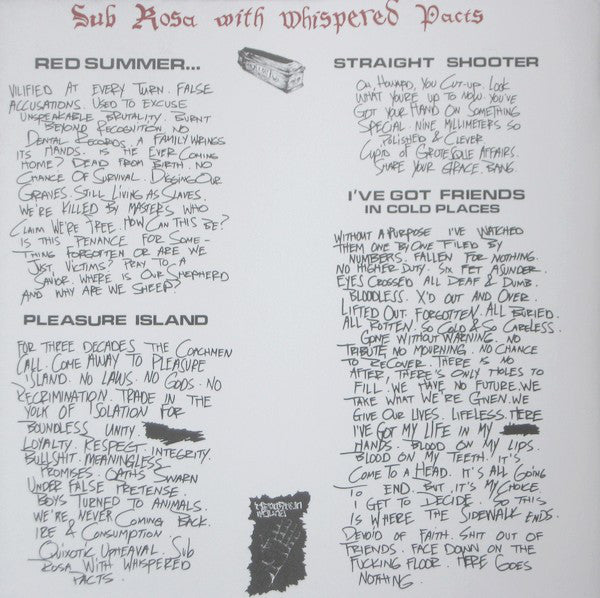 Sub Rosa with whispered Pacts
RED SUMMER...
VILIFIED AT EVERY TURN. FALSE
ACCUSATIONS. USED TO EXCUSE
UNSPEAKABLE BRUTALITY. BURNT
BEYOND RECOGNITION NO
DENTAL RECORDS. A FAMILY WRINGS
ITS HANDS. IS HE EVER COMING
HOME? DEAD FROM BIRTH. NO
CHANCE OF SURVIVAL. DIGGING OUR
GRAVES. STILL LIVING AS SLAVES.
WE'RE KILLED BY MASTERS WHO
CLAIM WE'RE FREE. HOW CAN THIS BE?
IS THIS PENANCE FOR SOME-
THING FORGOTTEN OR ARE WE
JUST VICTIMS? PRAY TO A
SAVIOR. WHERE IS OUR SHEPHERD
AND WHY ARE WE SHEEP?
PLEASURE ISLAND
FOR THREE DECADES THE COACHMEN
CALL. COME AWAY TO PLEASURE
ISLAND. NO LAWS. NO GODS. NO
RECRIMINATION. TRADE IN THE
YOLK OF ISOLATION FOR
BOUNDLESS UNITY.
LOYALTY. RESPECT. INTEGRITY.
BULLSHIT. MEANINGLESS
PROMISES. OATHS SWARN
UNDER FALSE PRETENSE.
BOYS TURNED TO ANIMALS.
WE'RE NEVER COMING BACK.
IRE & CONSUMPTION
QUIXOTIC UPHEAVAL. SUB
ROSA WITH WHISPERED
PACTS.
STRAIGHT SHOOTER
OH, HOWARD, YOU CUT-UP. LOOK
WHAT YOU'RE UP TO NOW. YOU'VE
GOT YOUR HAND ON SOMETHING
SPECIAL. NINE MILLIMETERS SO
POLISHED & CLEVER.
CUPID OF GROTESQUE AFFAIRS.
SHARE YOUR GRACE. BANG.
I'VE GOT FRIENDS
IN COLD PLACES
WITHOUT A PURPOSE I'VE WATCHED
THEM ONE BY ONE FILED BY
NUMBERS. FALLEN FOR NOTHING.
NO HIGHER DUTY. SIX FET ASUNDER.
EYES CROSSED ALL DEAF & DUMB.
BLOODLESS. X'D OUT AND OVER.
LIFTED OUT. FORGOTTEN. ALL BURIED.
ALL ROTTEN. SO COLD & SO CARELESS.
GONE WITHOUT WARNING. NO
TRIBUTE, NO MOURNING. NO CHANCE
TO RECOVER. THERE IS NO
AFTER, THERE'S ONLY HOLES TO
FILL. WE HAVE NO FUTURE. WE
TAKE WHAT WE'RE GIVEN. WE
GIVE OUR LIVES. LIFELESS. HERE
I'VE GOT MY LIFE IN MY
HANDS. BLOOD ON MY LIPS.
BLOOD ON MY TEETH. IT'S
COME TO A HEAD. IT'S ALL GOING
TO END. BUT, IT'S MY CHOICE.
I GET TO DECIDE. SO THIS
IS WHERE THE SIDEWALK ENDS.
DEVOID OF FAITH. SHIT OUT OF
FRIENDS. FACE DOWN ON THE
FUCKING FLOOR. HERE GOES
NOTHING.